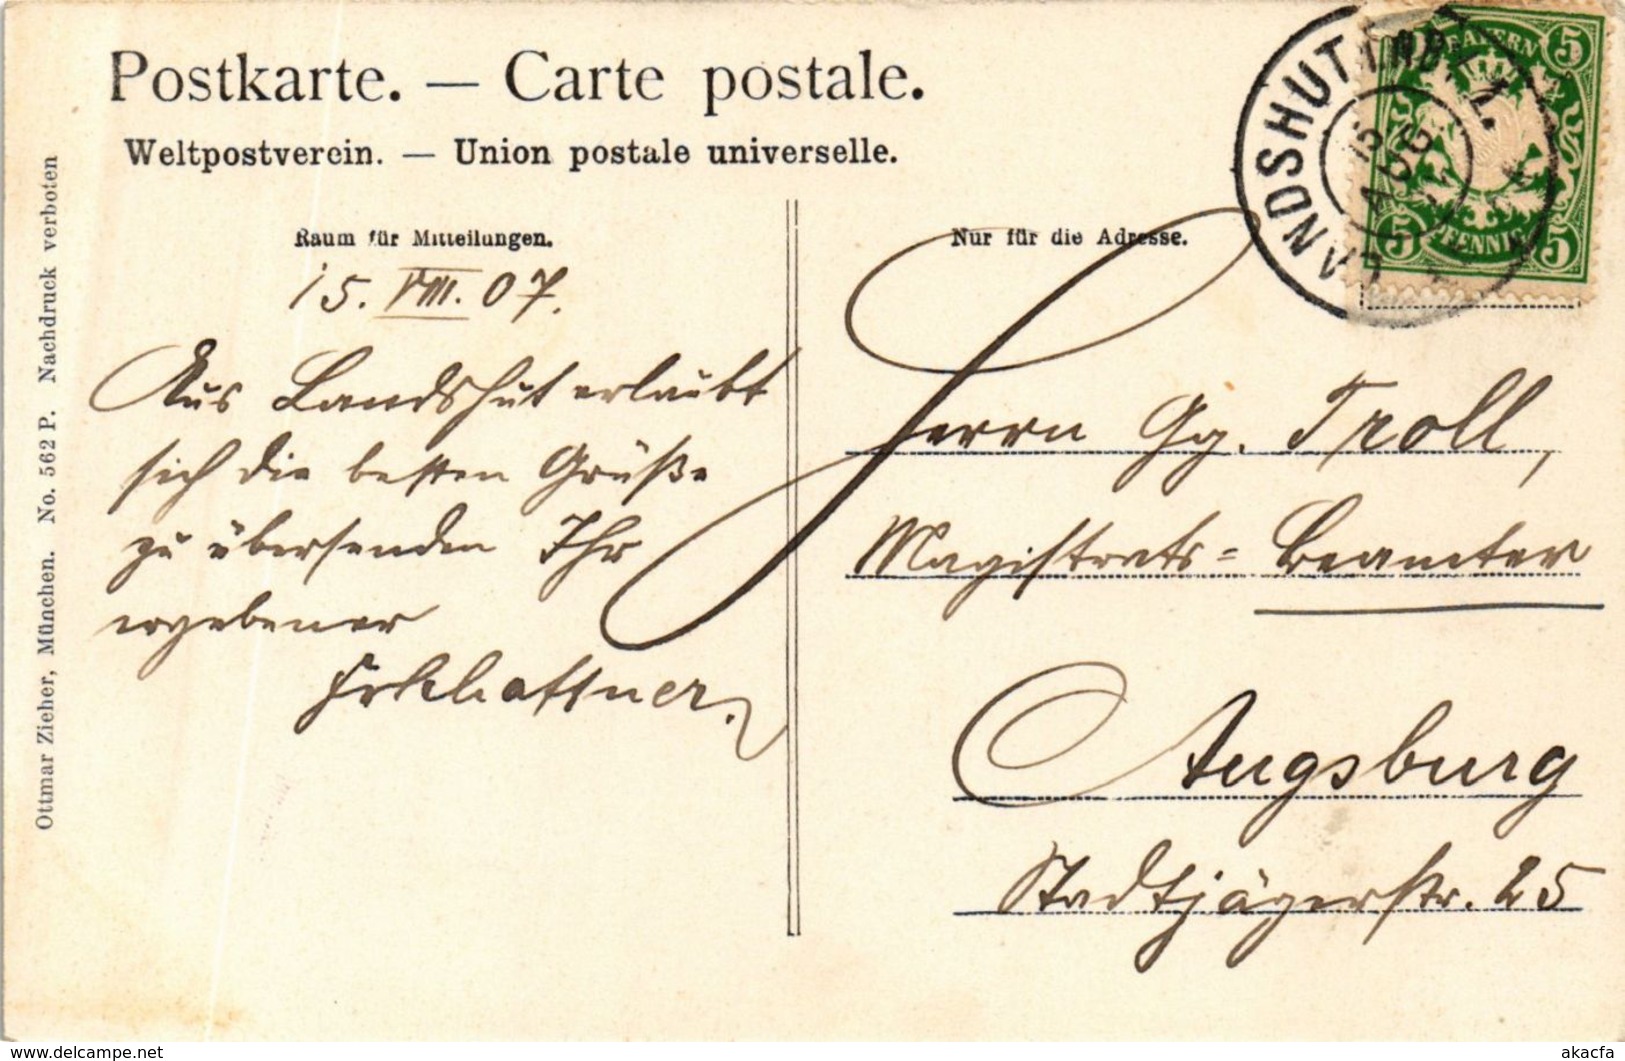 Postkarte. — Carte postale.
Weltpostverein. — Union postale universelle.
Raum für Mitteilungen.
15. VIII. 07.
Aus Landshut erlaubt
sich die besten Grüße
zu übersenden Ihr
ergebener
Nur für die Adresse.
Herrn Gg. Troll,
Magistrats=Beamter
Augsburg
Stadtjägerstr. 25
LANDSHUT
BAYERN
5 5
5 PFENNIG 5
Ottmar Zieher, München. No. 562 P. Nachdruck verboten
akacfa